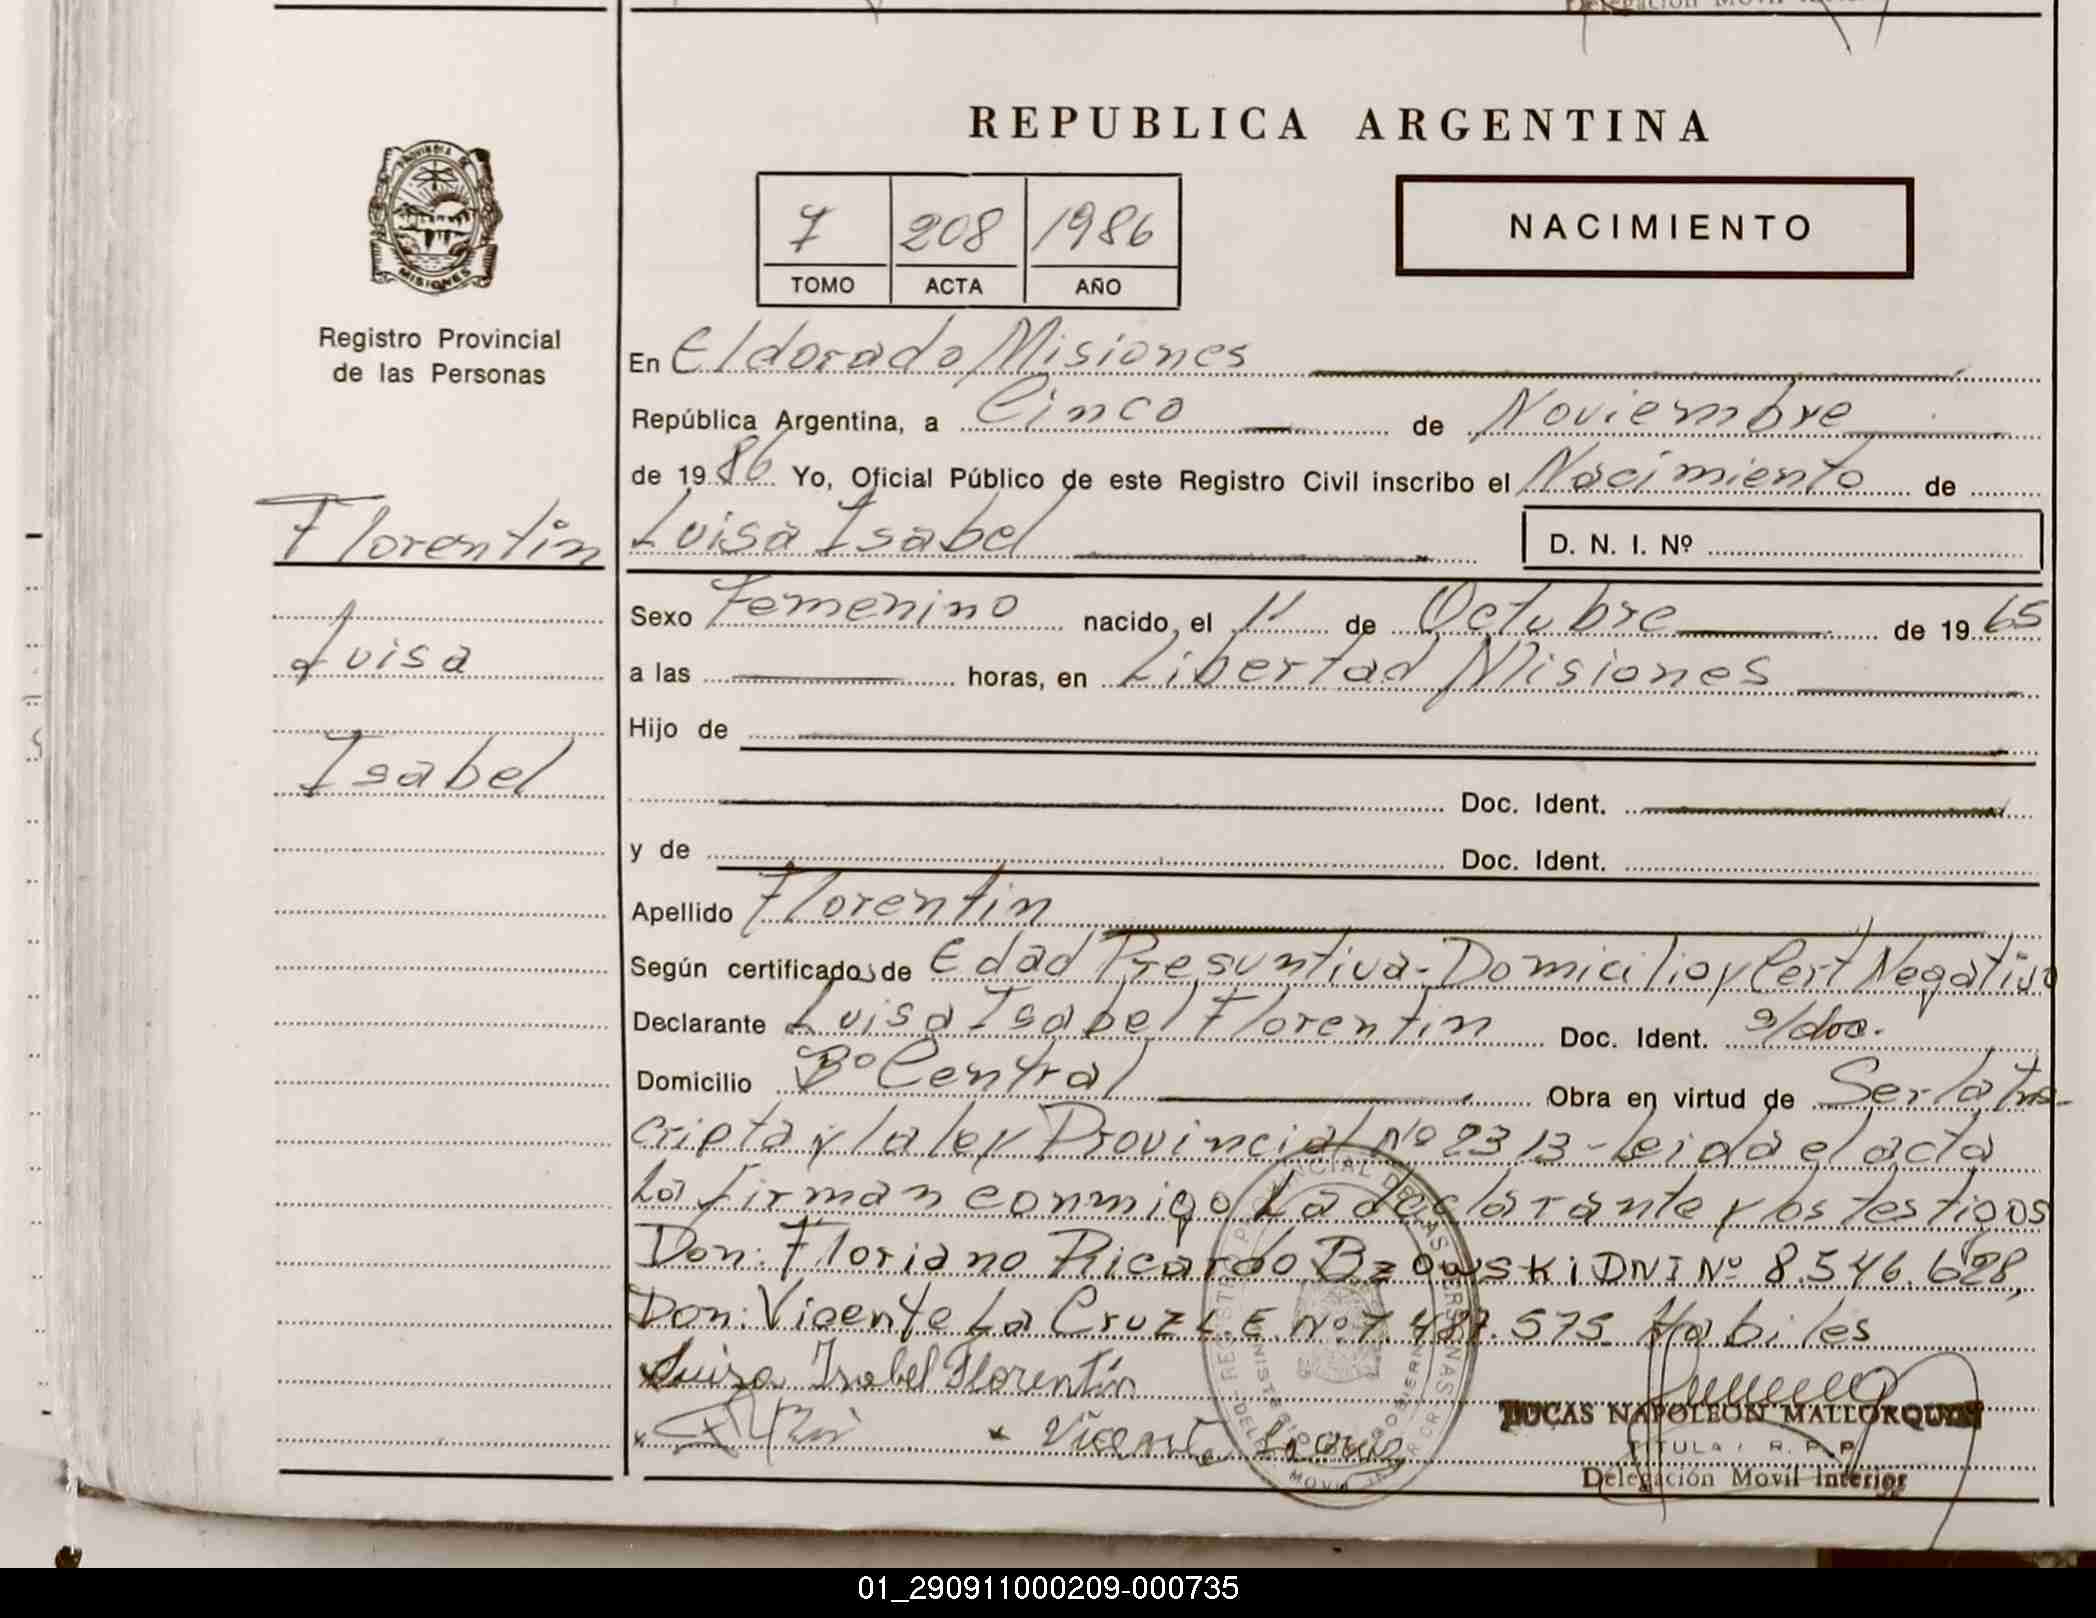 REPUBLICA ARGENTINA
PROVINCIA DE
MISIONES
Registro Provincial
de las Personas
7 208 1986
TOMO ACTA AÑO
NACIMIENTO
En Eldorado Misiones
República Argentina, a Cinco de Noviembre
de 1986 Yo, Oficial Público de este Registro Civil inscribo el Nacimiento de
Florentin
Luisa Isabel
D. N. I. Nº
Luisa
Isabel
Sexo Femenino nacido el 11 de Octubre de 1965
a las horas, en Libertad Misiones
Hijo de
Doc. Ident.
y de Doc. Ident.
Apellido Florentin
Según certificado de Edad Presuntiva - Domicilio y Cert Negativo
Declarante Luisa Isabel Florentin Doc. Ident. s/doc.
Domicilio Bº Central Obra en virtud de Ser la Ins-
cripta y la ley Provincial Nº 2313 - Leida el acta
La firman conmigo La declarante y los testigos
Don: Floriano Ricardo Bzowski DNI Nº 8.546.628,
Don: Vicente La Cruz L E. Nº 7.487.575 Habiles
Luisa Isabel Florentín
x x Vicente Lacruz
LUCAS NAPOLEON MALLORQUIN
TITULAR R. P. P.
Delegación Movil Interior
01_290911000209-000735